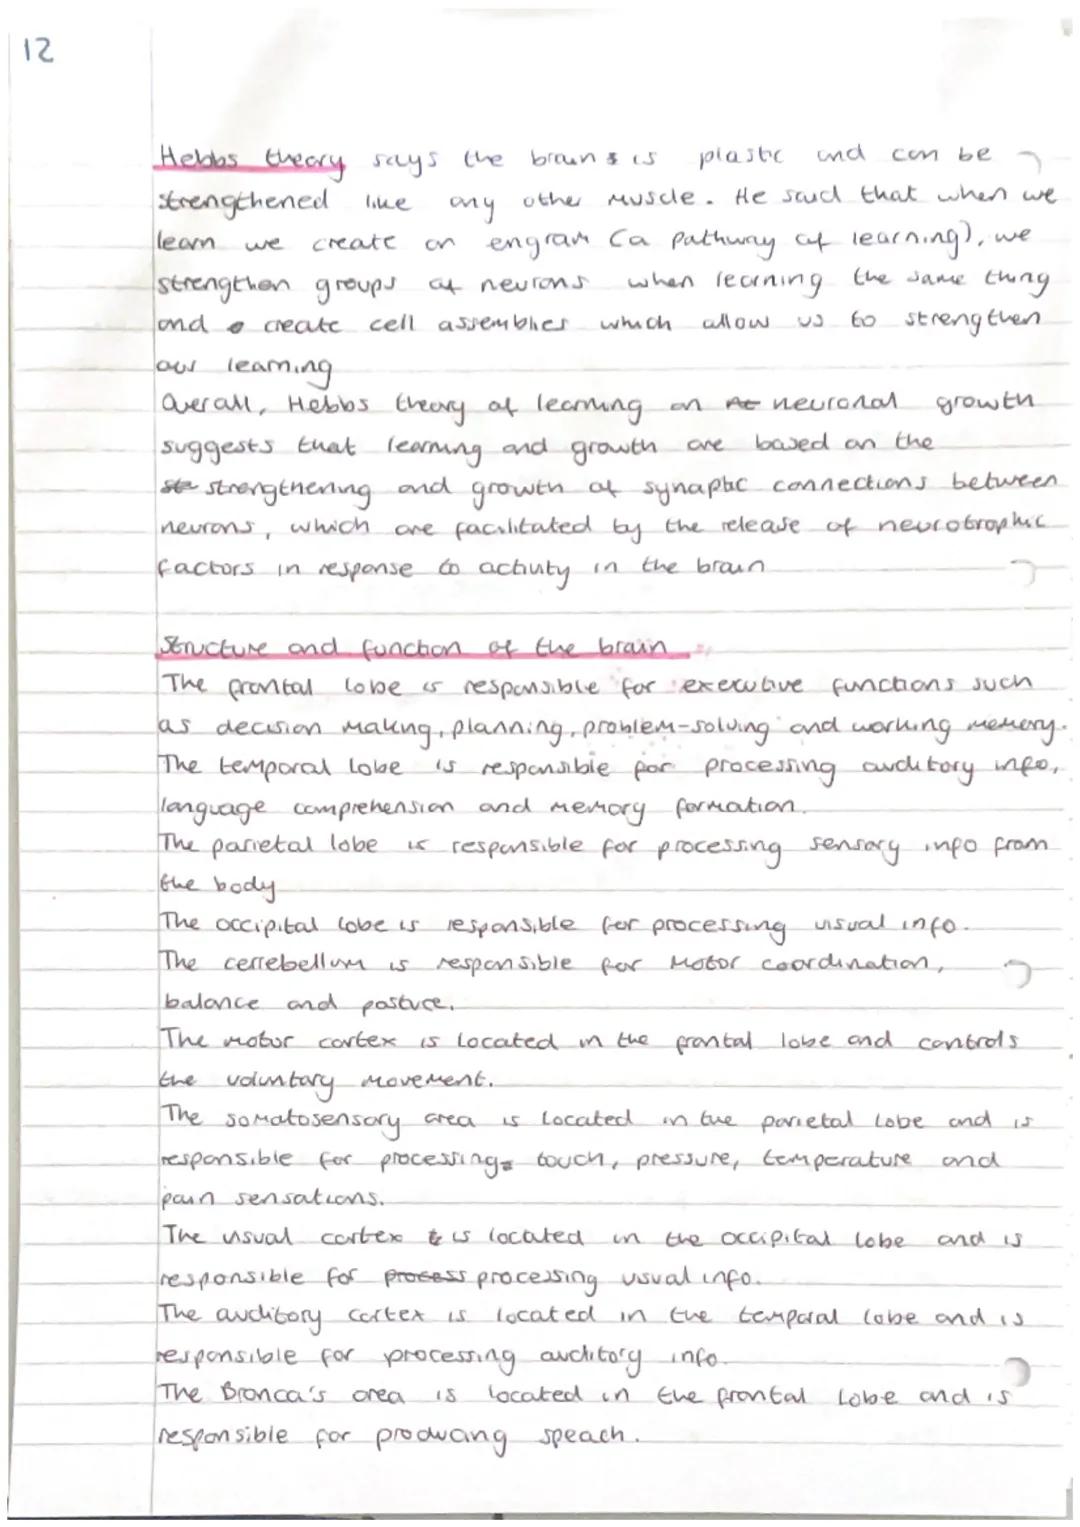 12
Hebbs theory says the brain is plastic and can be
strengthened like any other muscle. He said that when we
learn we create an engram (a pathway of learning), we
strengthen groups of neurons when learning the same thing
and create cell assemblies which allow us to strengthen
our learning
Overall, Hebbs theory of learning on neuronal growth
suggests that learning and growth are based on the
strengthening and growth of synaptic connections between
neurons, which are facilitated by the release of neurotrophic
factors in response to activity in the brain
Structure and function of the brain
The frontal lobe is responsible for executive functions such
as decision making, planning, problem-solving and working memory.
The temporal lobe is responsible for processing auditory info,
language comprehension and memory formation.
The parietal lobe is responsible for processing sensory info from
the body
The occipital lobe is responsible for processing visual info.
The cerrebellum is responsible for motor coordination,
balance and posture.
The motor cortex is located in the frontal lobe and controls
the voluntary movement.
The somatosensory area is located in the parietal lobe and is
responsible for processing touch, pressure, temperature and
pain sensations.
The visual cortex is located in the occipital lobe and is
responsible for process processing visual info.
The auditory cortex is located in the temporal lobe and is
responsible for processing auditory info.
The Bronca's area is located in the frontal lobe and is
responsible for producing speach.